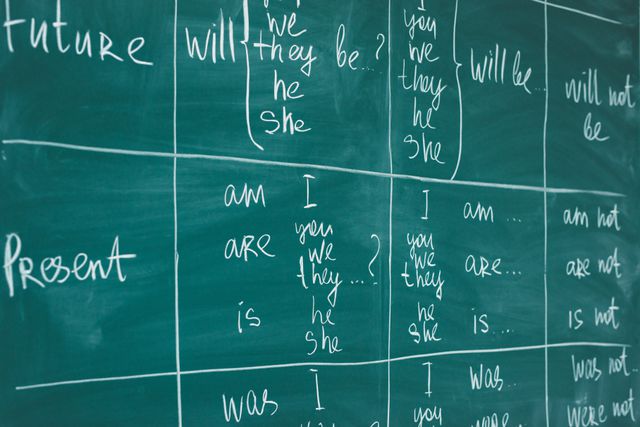 you
we
Future will they be...?
he
she
I
you
we
they will be...
he
she
will not
be
Present
am I
are you
we
they...?
is he
she
I am ...
you
we are...
they
he is....
she
am not
are not
is not
was I
I was..
you
was not..
were not